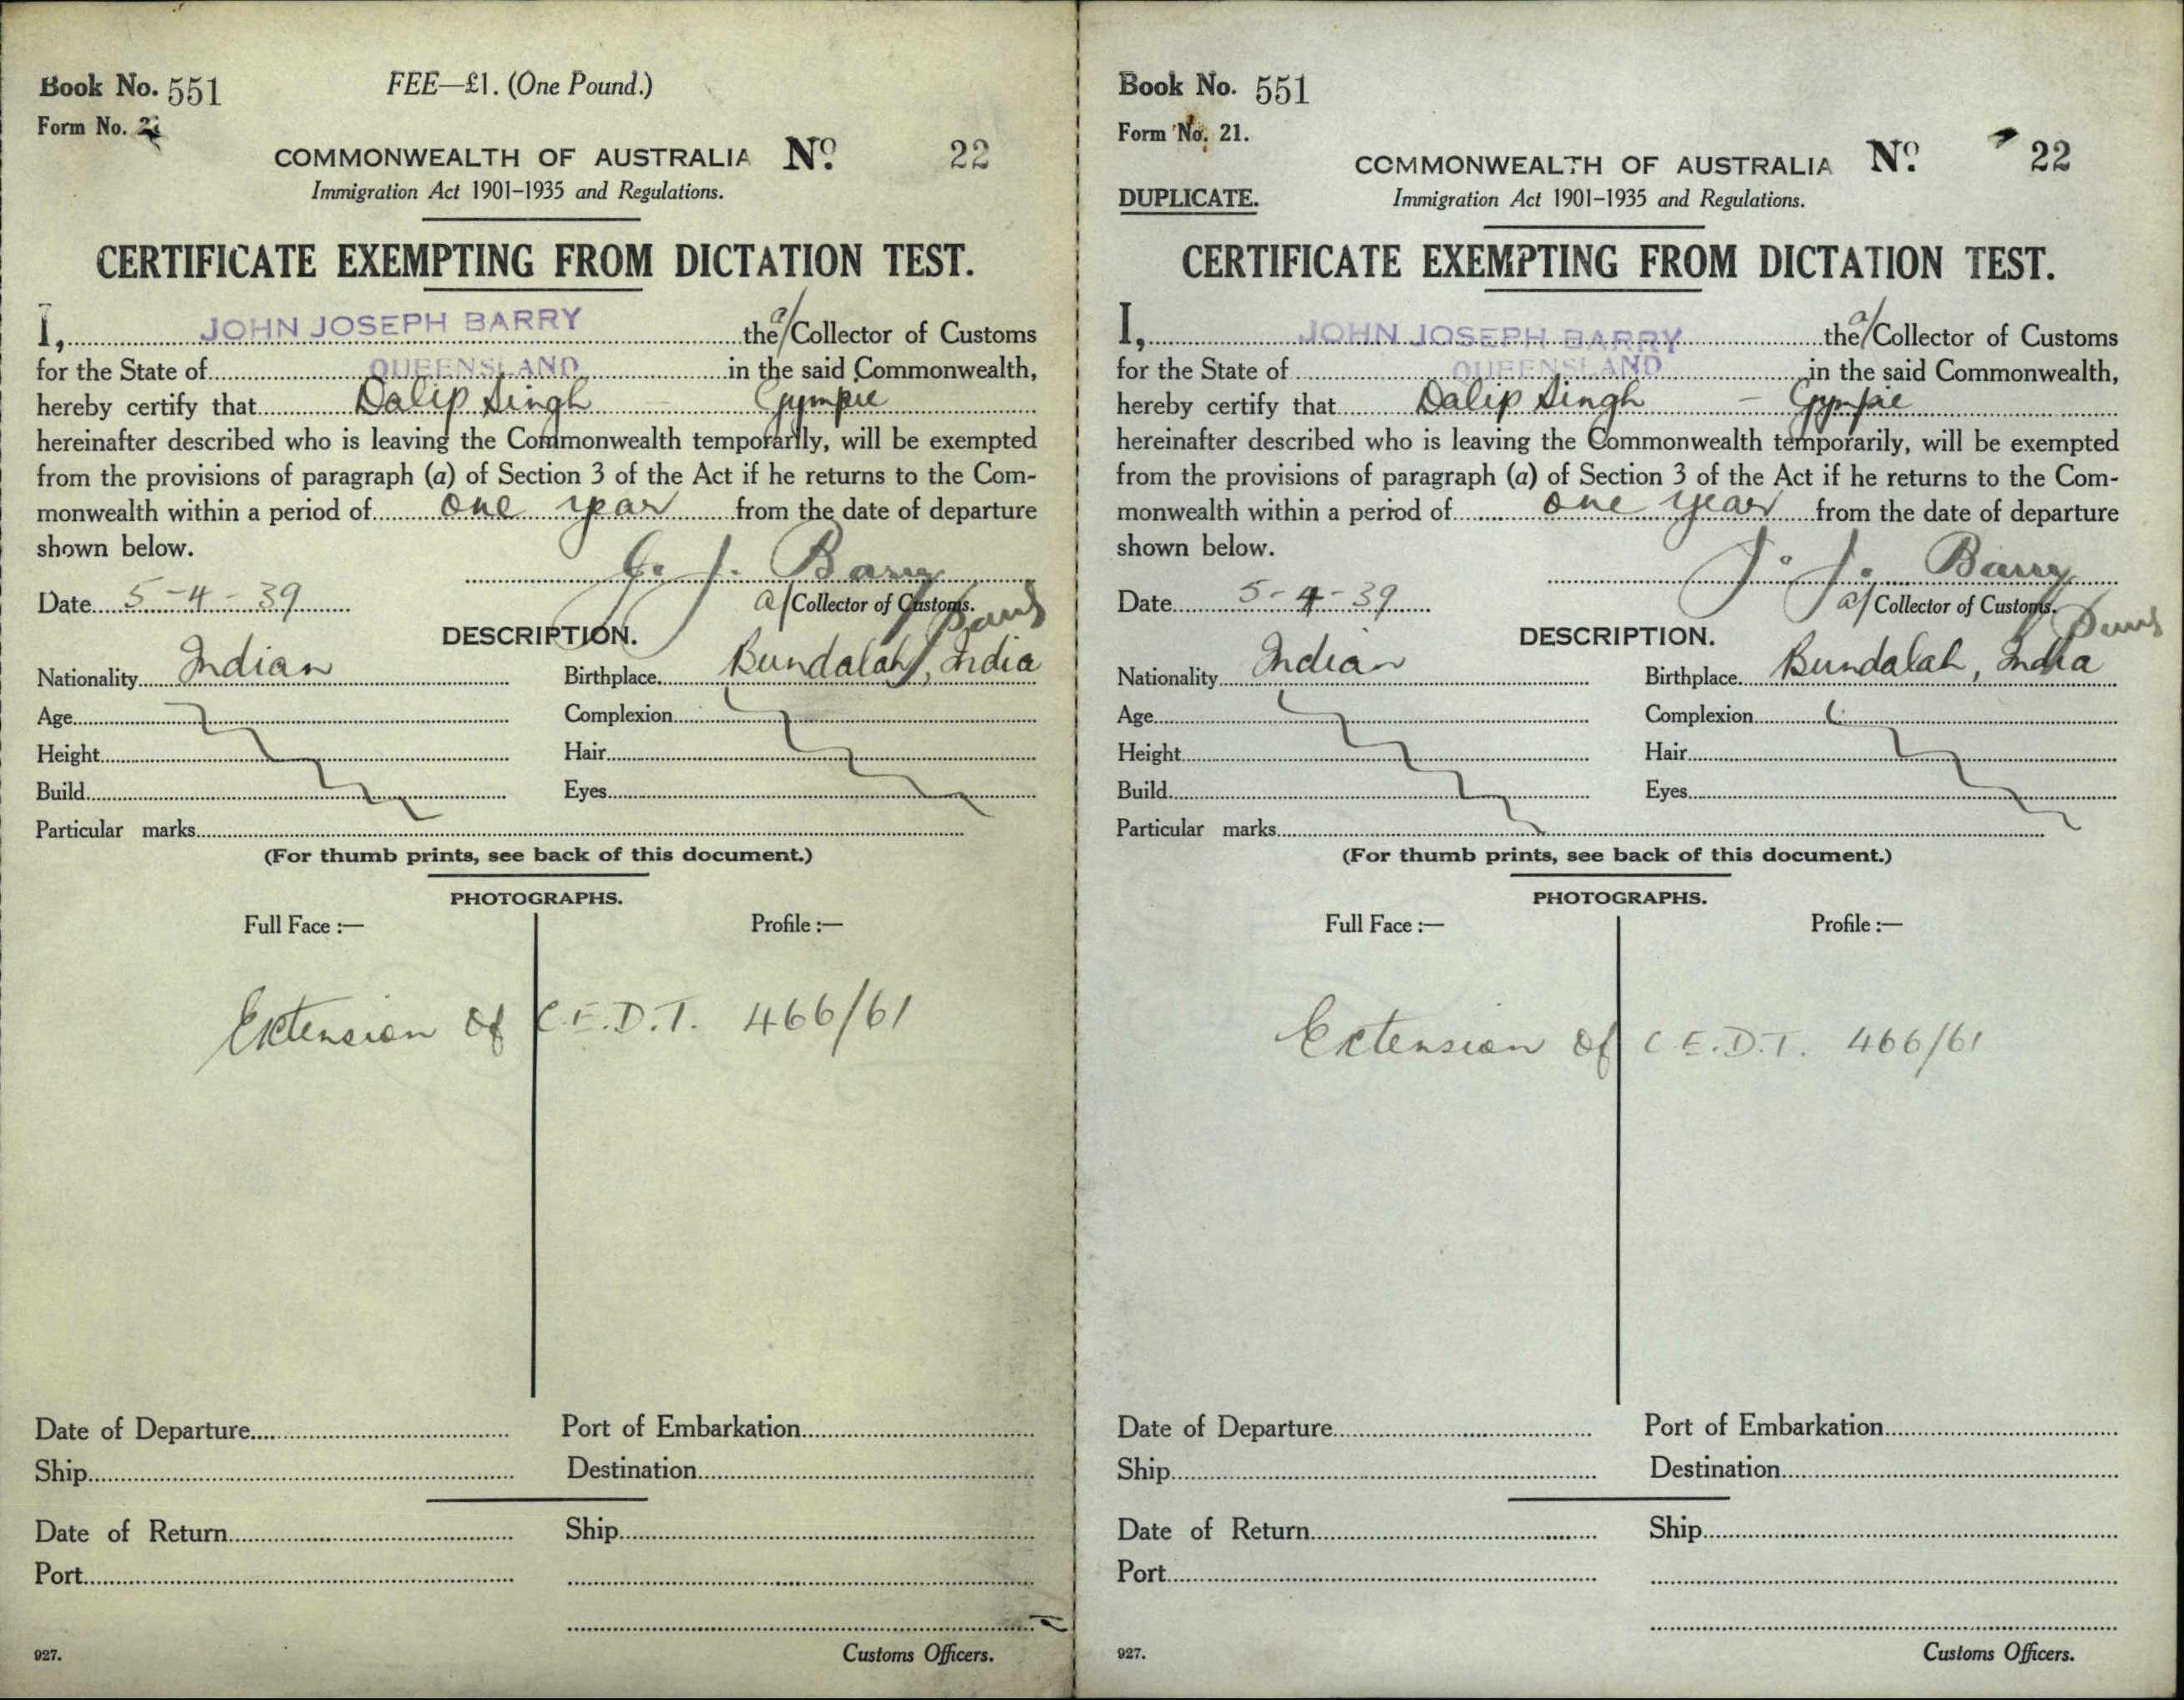 Book No. 551
FEE—£1. (One Pound.)
Form No. 21
COMMONWEALTH OF AUSTRALIA No. 22
Immigration Act 1901–1935 and Regulations.
CERTIFICATE EXEMPTING FROM DICTATION TEST.
I, JOHN JOSEPH BARRY the a/ Collector of Customs
for the State of QUEENSLAND in the said Commonwealth,
hereby certify that Dalip Singh Gympie
hereinafter described who is leaving the Commonwealth temporarily, will be exempted
from the provisions of paragraph (a) of Section 3 of the Act if he returns to the Com-
monwealth within a period of one year from the date of departure
shown below.
J. J. Barry
Date 5-4-39
a/ Collector of Customs.
DESCRIPTION.
Nationality Indian Birthplace Bundalah, India
Age Complexion
Height Hair
Build Eyes
Particular marks
(For thumb prints, see back of this document.)
PHOTOGRAPHS.
Full Face :— Profile :—
Extension of C.E.D.T. 466/61
Date of Departure Port of Embarkation
Ship Destination
Date of Return Ship
Port
927. Customs Officers.
Book No. 551
Form No. 21.
COMMONWEALTH OF AUSTRALIA No. 22
DUPLICATE.
Immigration Act 1901–1935 and Regulations.
CERTIFICATE EXEMPTING FROM DICTATION TEST.
I, JOHN JOSEPH BARRY the a/ Collector of Customs
for the State of QUEENSLAND in the said Commonwealth,
hereby certify that Dalip Singh — Gympie
hereinafter described who is leaving the Commonwealth temporarily, will be exempted
from the provisions of paragraph (a) of Section 3 of the Act if he returns to the Com-
monwealth within a period of one year from the date of departure
shown below.
J. J. Barry
Date 5-4-39
a/ Collector of Customs.
DESCRIPTION.
Nationality Indian Birthplace Bundalah, India
Age Complexion
Height Hair
Build Eyes
Particular marks
(For thumb prints, see back of this document.)
PHOTOGRAPHS.
Full Face :— Profile :—
Extension of C.E.D.T. 466/61
Date of Departure Port of Embarkation
Ship Destination
Date of Return Ship
Port
927. Customs Officers.